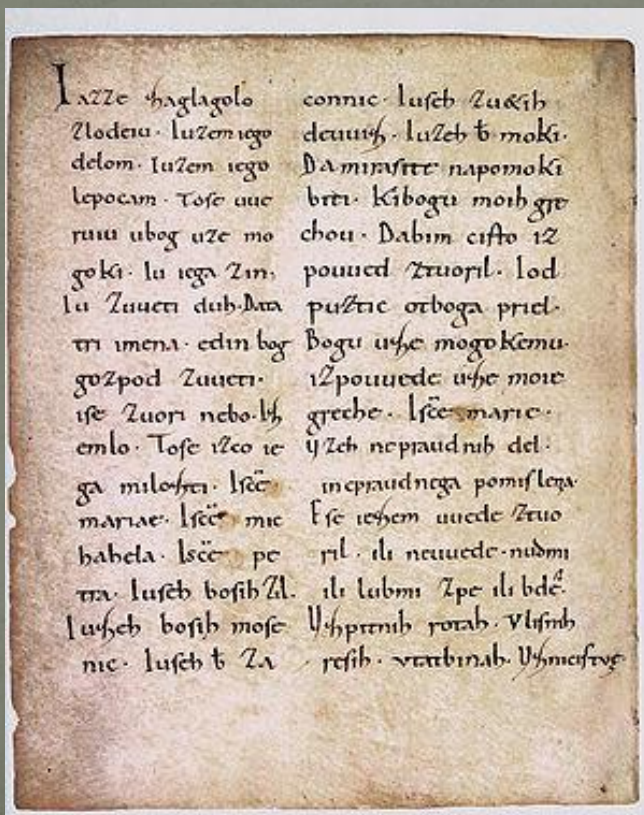 Iazze zhaglagolo
zlodeiu · Iuzem iego
delom · Iuzem iego
lepocam · Toſe uue
ruiu ubog uze mo
goki · Iu iega zin·
Iu zuueti duh· Data
tri imena · edin bog
gozpod zuueti·
iſe zuori nebo· Izh
emlo · Toſe izco ie
ga milozhti · Iſcē
mariae · Iſcē mic
hahela · Iſcē pe
tra · Iuſeh boſih zil·
Iuzheh boſih moſe
nic · Iuſeh b̄ za
connic · Iuſeh zu&ih
deuuizh · Iuzeh b̄ moki·
Da miraſite napomoki
biti · Kibogu moih gre
chou · Dabim ciſto iz
pouued ztuoril · Iod
puztic otboga priel·
Bogu uzhe mogokemu·
izpouuede uzhe moie
greche · Iſcē marie ·
Uzeh nepraudnih del ·
inepraudnega pomiſlena·
Eſe iezhem uuede ztuo
ril · ili neuuede · nudmi
ili lubmi zpe ili bdē·
Uzhpitnih rotah · Vliſnih
reſih · vtatbinah · Uzhniciſtve·